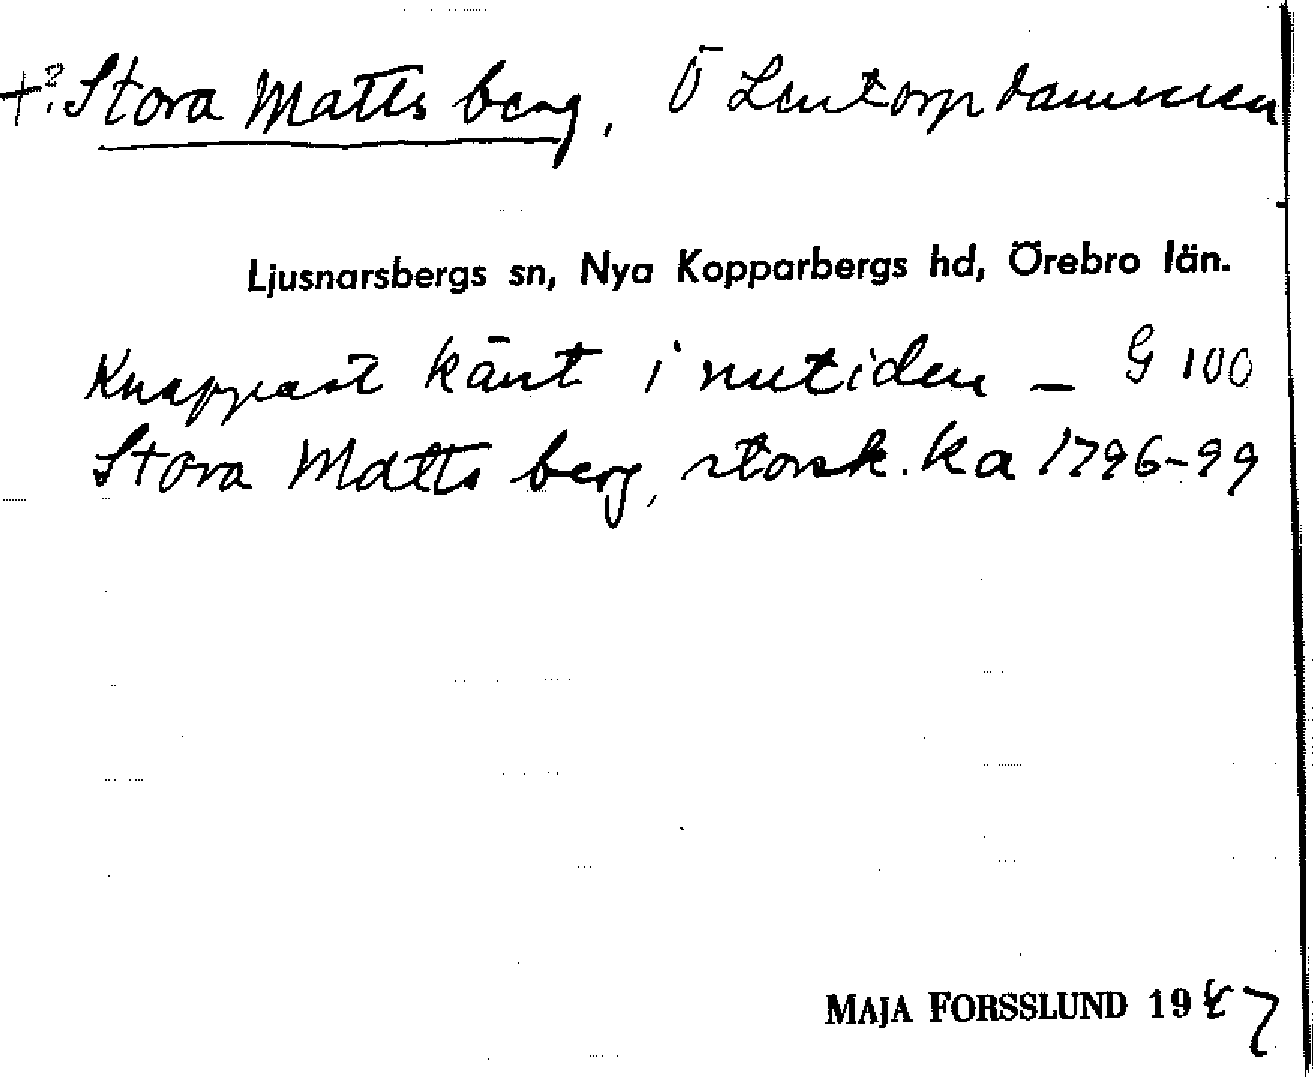 +? Stora Matts berg, Ö Lentorpdammen
Ljusnarsbergs sn, Nya Kopparbergs hd, Örebro län.
Knappast känt i nutiden – G 100
Stora Matts berg, storsk. ka 1796-99
MAJA FORSSLUND 1947